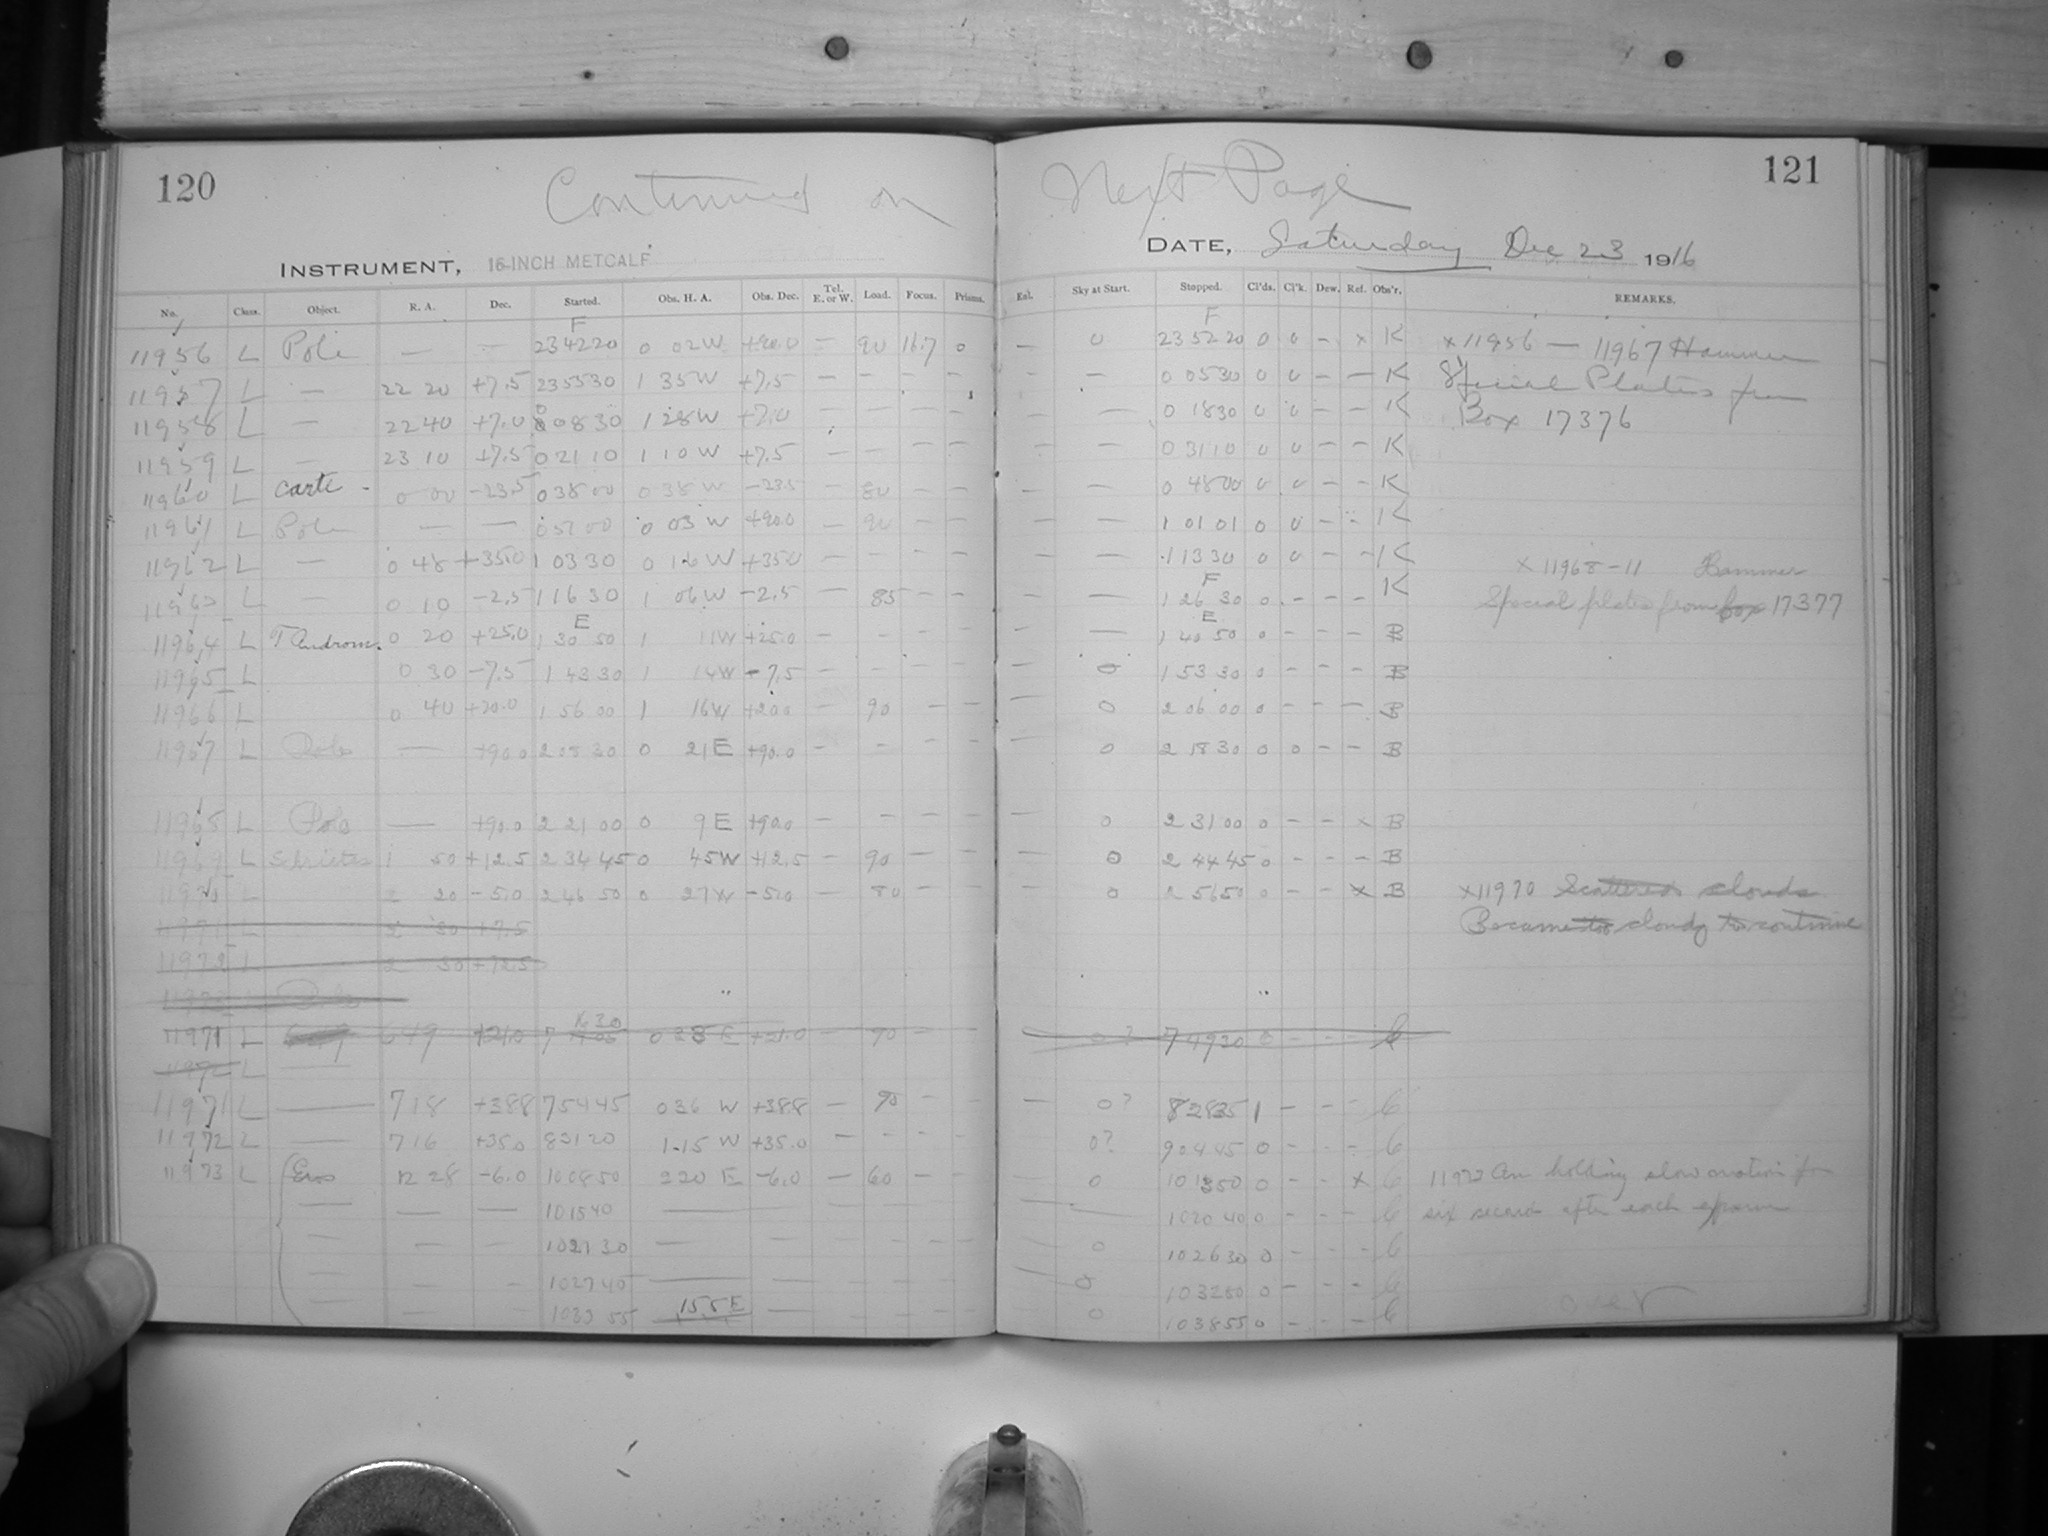 120
121
Continued on Next Page
INSTRUMENT, 16-INCH METCALF
DATE, Saturday Dec 23 1916
No. Class. Object. R. A. Dec. Started. Obs. H. A. Obs. Dec. Tel. E. or W. Load. Focus. Prisms. Exl. Sky at Start. Stopped. Cl'ds. Cl'k. Dew. Ref. Obs'r. REMARKS.
F F
11956 L Pole — — 234220 0 02W +90.0 — 90 16.7 0 — 0 235220 0 0 — x K x 11956 — 11967 Hammer
11957 L — 22 20 +7.5 235530 1 35W +7.5 — — — — — 0 0530 0 0 — — K Special Plates from
11958 L — 22 40 +7.0 0 0830 1 28W +7.0 — — — — — 0 1830 0 0 — — K Box 17376
11959 L — 23 10 +7.5 0 2110 1 10W +7.5 — — — — — — 0 3110 0 0 — — K
11960 L Carte - 0 00 -23.5 0 3800 0 38W -23.5 — 80 — — — — 0 4800 0 0 — — K
11961 L Pole — — 0 5100 0 03 W +90.0 — 90 — — — — 1 01 01 0 0 — K
11962 L — 0 48 +35.0 1 0330 0 16W +35.0 — — — — — — 1 1330 0 0 — — K
x 11968-11 Hammer
F
L — 0 10 -2.5 1 1630 1 06W -2.5 — 85 — — — — 1 26 30 0 - — — K Special plates from box 17377
E E
11964 L T Androm. 0 20 +25.0 1 30 50 1 11W +25.0 — — — — — — 1 40 50 0 - - - B
11965 L 0 30 -7.5 1 4330 1 14W -7.5 — — — — — 0 1 53 30 0 - - - B
11966 L 0 40 +20.0 1 56 00 1 16W +20.0 — 90 — — — 0 2 06 00 0 - - - B
11967 L Pole — +90.0 2 08 30 0 21E +90.0 — — — — — 0 2 18 30 0 0 - - B
11968 L Pole — +90.0 2 21 00 0 9E +90.0 — — — — — 0 2 31 00 0 - - x B
11969 L 1 50 +12.5 2 34 45 0 45W +12.5 — 90 — — — 0 2 44 45 0 - - - B
11970 L 2 20 -5.0 2 46 50 0 27W -5.0 — 80 — — — 0 2 56 50 0 - - x B x11970 Scattered clouds
11971 L 2 30 +7.5 Became too cloudy to continue
11972 L 2 30 +12.5
11973 Pole
11971 L 649 +21.0 7 0 28 E +21.0 — 90 — — 0? 7 4920 0 - - - C
11972 L —
11971 L — 718 +38.8 75445 0 36 W +38.8 — 90 — — — 0? 82835 1 - - - C
11972 L — 716 +35.0 83120 1.15 W +35.0 — - - - — 0? 90445 0 - - - C
11973 L Eros 12 28 -6.0 100850 2 20 E -6.0 — 60 — — 0 101350 0 - - x C 11973 Am holding slow motion for
— — — 101540 — — 102040 0 - - - C six second after each exposure
— — — 102130 — 0 102630 0 - - - C
— — — 102740 — — 0 103240 0 - - - C
— — 1033 55 155E — 0 103855 0 - - - C
over